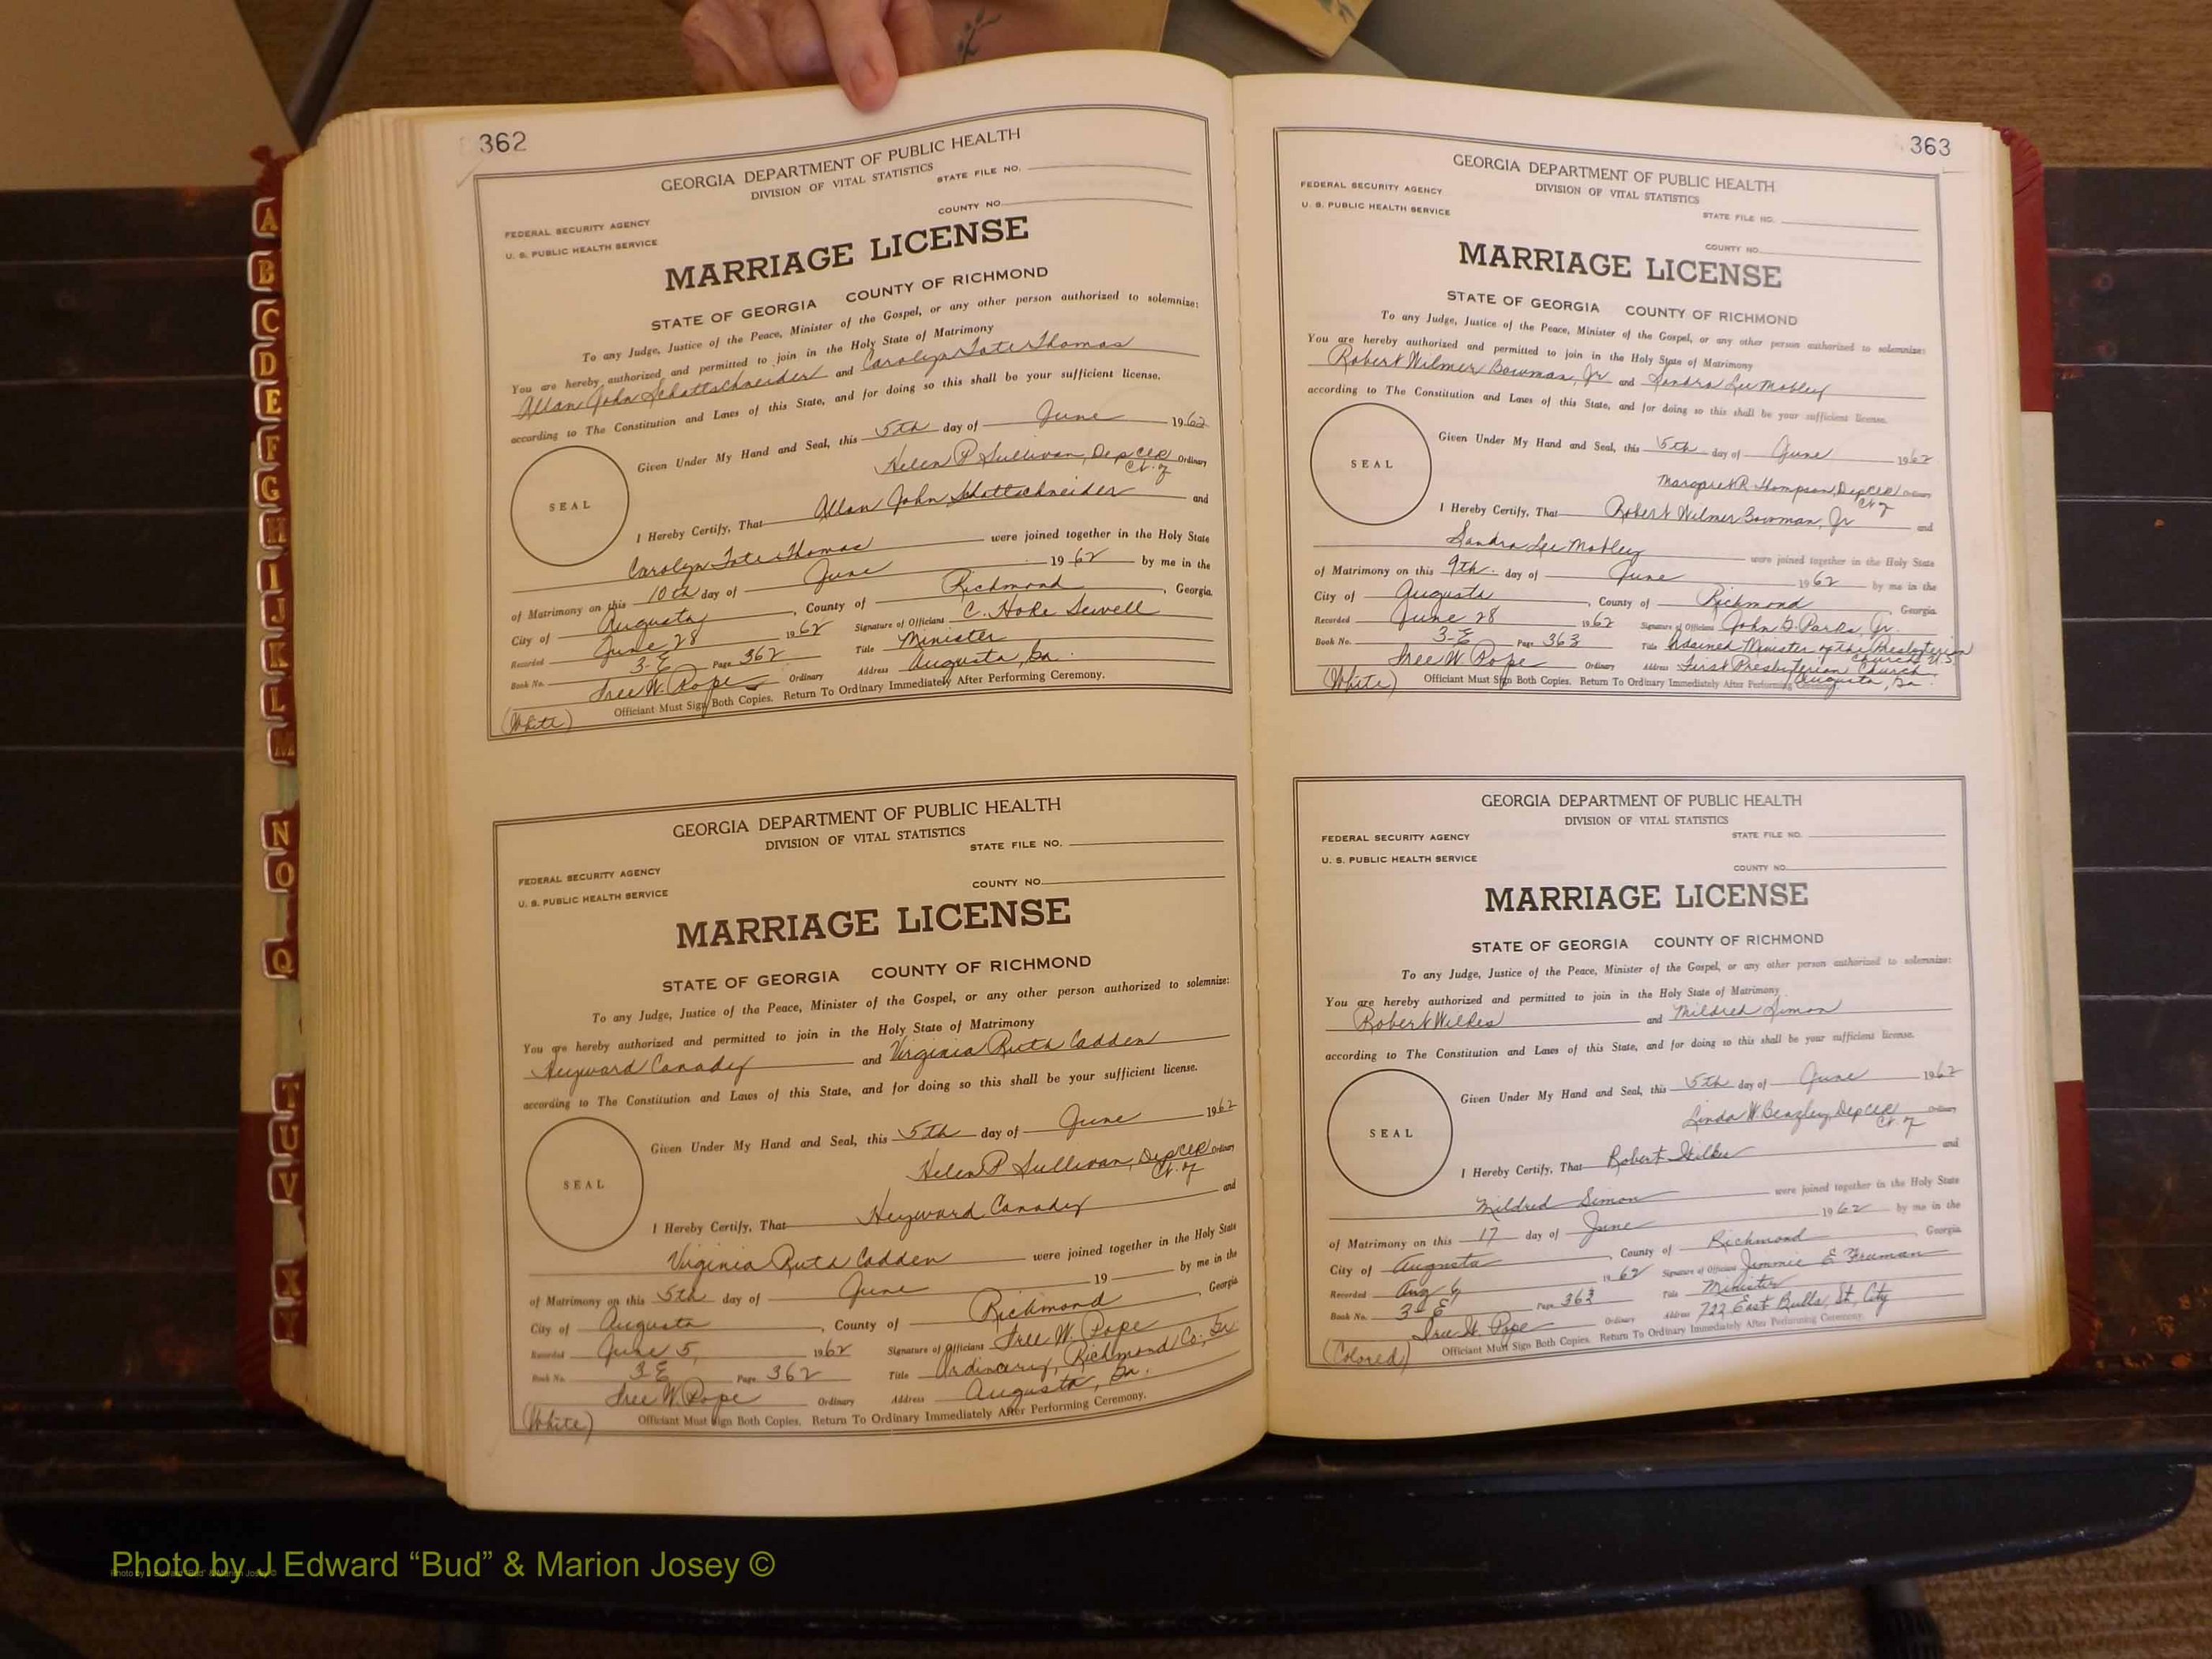 362
GEORGIA DEPARTMENT OF PUBLIC HEALTH
DIVISION OF VITAL STATISTICS
STATE FILE NO.
COUNTY NO.
FEDERAL SECURITY AGENCY
U. S. PUBLIC HEALTH SERVICE
MARRIAGE LICENSE
STATE OF GEORGIA COUNTY OF RICHMOND
To any Judge, Justice of the Peace, Minister of the Gospel, or any other person authorized to solemnize:
You are hereby authorized and permitted to join in the Holy State of Matrimony
Allan John Schattschneider and Carolyn Tate Thomas
according to The Constitution and Laws of this State, and for doing so this shall be your sufficient license.
Given Under My Hand and Seal, this 5th day of June 1962
Helen P Sullivan, Dep Clk Ordinary
Ct. of
SEAL
I Hereby Certify, That Allan John Schattschneider and
Carolyn Tate Thomas were joined together in the Holy State
of Matrimony on this 10th day of June 1962 by me in the
City of Augusta, County of Richmond, Georgia.
Recorded June 28 1962 Signature of Officiant C. Hoke Sewell
Book No. 3-E Page 362 Title Minister
Tree W. Pope Ordinary Address Augusta, Ga.
(White) Officiant Must Sign Both Copies. Return To Ordinary Immediately After Performing Ceremony.
GEORGIA DEPARTMENT OF PUBLIC HEALTH
DIVISION OF VITAL STATISTICS
STATE FILE NO.
FEDERAL SECURITY AGENCY
COUNTY NO.
U. S. PUBLIC HEALTH SERVICE
MARRIAGE LICENSE
STATE OF GEORGIA COUNTY OF RICHMOND
To any Judge, Justice of the Peace, Minister of the Gospel, or any other person authorized to solemnize:
You are hereby authorized and permitted to join in the Holy State of Matrimony
Heyward Canady and Virginia Ruth Cadden
according to The Constitution and Laws of this State, and for doing so this shall be your sufficient license.
Given Under My Hand and Seal, this 5th day of June 1962
Helen P Sullivan, Dep Clk Ordinary
Ct. of
SEAL
I Hereby Certify, That Heyward Canady and
Virginia Ruth Cadden were joined together in the Holy State
of Matrimony on this 5th day of June 19 by me in the
City of Augusta, County of Richmond Georgia
Recorded June 5, 1962 Signature of Officiant Tree W. Pope
Book No. 3 E Page 362 Title Ordinary, Richmond Co., Ga
Tree W. Pope Ordinary Address Augusta, Ga.
(White) Officiant Must Sign Both Copies. Return To Ordinary Immediately After Performing Ceremony.
363
GEORGIA DEPARTMENT OF PUBLIC HEALTH
DIVISION OF VITAL STATISTICS
FEDERAL SECURITY AGENCY
U. S. PUBLIC HEALTH SERVICE
STATE FILE NO.
COUNTY NO.
MARRIAGE LICENSE
STATE OF GEORGIA COUNTY OF RICHMOND
To any Judge, Justice of the Peace, Minister of the Gospel, or any other person authorized to solemnize:
You are hereby authorized and permitted to join in the Holy State of Matrimony
Robert Wilmer Bowman, Jr and Sandra Lee Mobley
according to The Constitution and Laws of this State, and for doing so this shall be your sufficient license.
Given Under My Hand and Seal, this 5th day of June 1962
Margaret R. Thompson, Dep Clk Ordinary
Ct of
SEAL
I Hereby Certify, That Robert Wilmer Bowman, Jr and
Sandra Lee Mobley were joined together in the Holy State
of Matrimony on this 9th day of June 1962 by me in the
City of Augusta, County of Richmond, Georgia
Recorded June 28 1962 Signature of Officiant John G. Parks, Jr.
Book No. 3-E Page 363 Title Ordained Minister of the Presbyterian
Church U.S.
Tree W. Pope Ordinary Address First Presbyterian Church
Augusta, Ga.
(White) Officiant Must Sign Both Copies. Return To Ordinary Immediately After Performing Ceremony.
GEORGIA DEPARTMENT OF PUBLIC HEALTH
DIVISION OF VITAL STATISTICS
FEDERAL SECURITY AGENCY
STATE FILE NO.
U. S. PUBLIC HEALTH SERVICE
COUNTY NO.
MARRIAGE LICENSE
STATE OF GEORGIA COUNTY OF RICHMOND
To any Judge, Justice of the Peace, Minister of the Gospel, or any other person authorized to solemnize:
You are hereby authorized and permitted to join in the Holy State of Matrimony
Robert Wilkes and Mildred Simon
according to The Constitution and Laws of this State, and for doing so this shall be your sufficient license.
Given Under My Hand and Seal, this 5th day of June 1962
Linda W. Beazley, Dep Clk Ordinary
Ct. of
SEAL
I Hereby Certify, That Robert Wilkes and
Mildred Simon were joined together in the Holy State
of Matrimony on this 17 day of June 1962 by me in the
City of Augusta, County of Richmond Georgia
Recorded Aug 6 1962 Signature of Officiant Jimmie E. Freeman
Book No. 3-E Page 363 Title Minister
Tree W. Pope Ordinary Address 722 East Bulls, St, City
(Colored) Officiant Must Sign Both Copies. Return To Ordinary Immediately After Performing Ceremony.
A
B
C
D
E
F
G
H
I
J
K
L
M
N
O
Q
T
U
V
X
Y
Photo by J Edward “Bud” & Marion Josey ©
Photo by J Edward "Bud" & Marion Josey ©